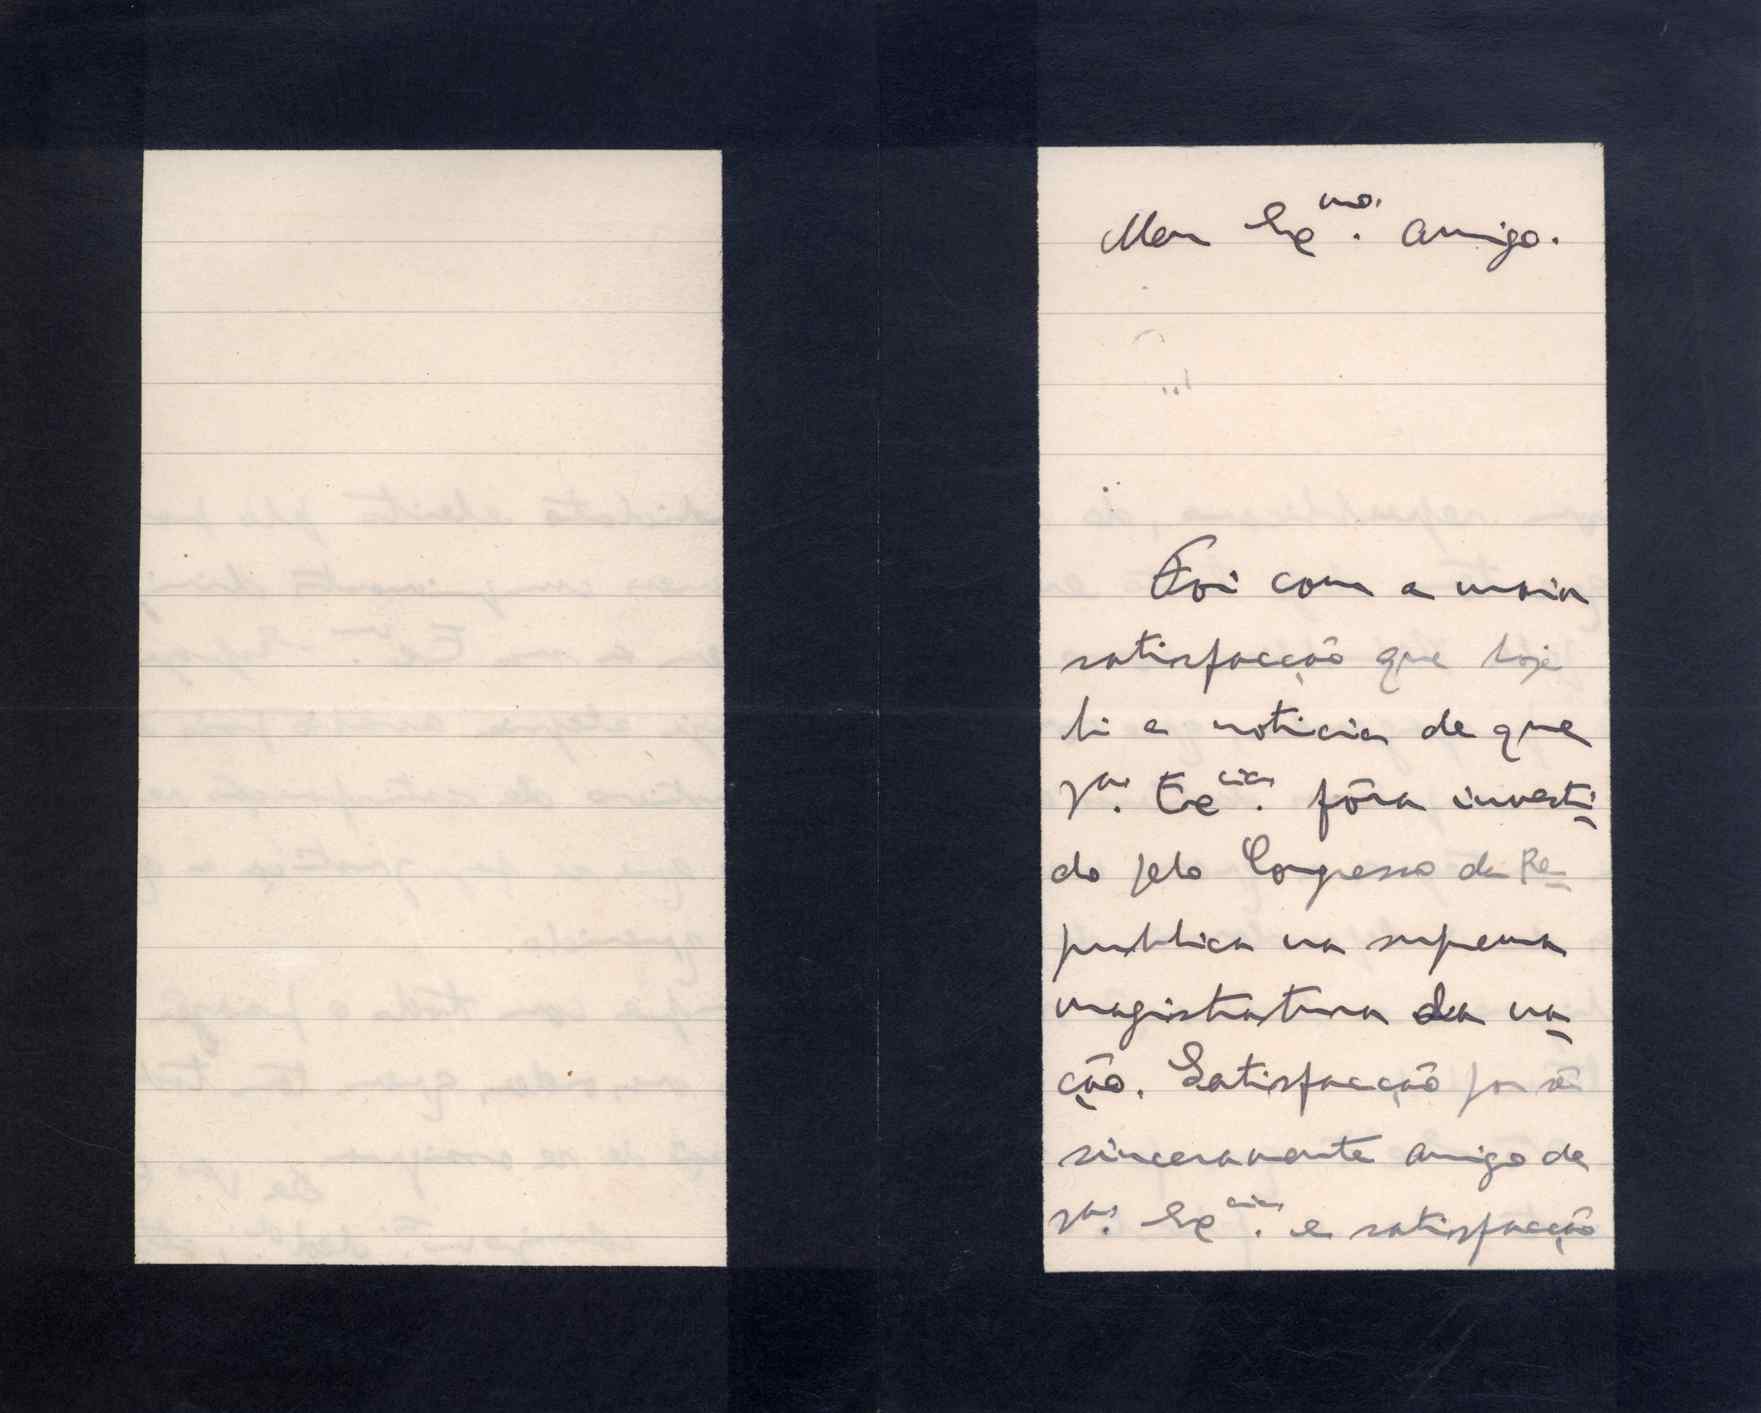 Meu Exmo. amigo.
Foi com a maior
satisfacção que hoje
li a noticia de que
Va. Excia. fôra investi-
do pelo Congresso da Re-
publica na suprema
magistratura da na-
ção. Satisfacção por sêr
sinceramente amigo de
Va. Excia. e satisfacção